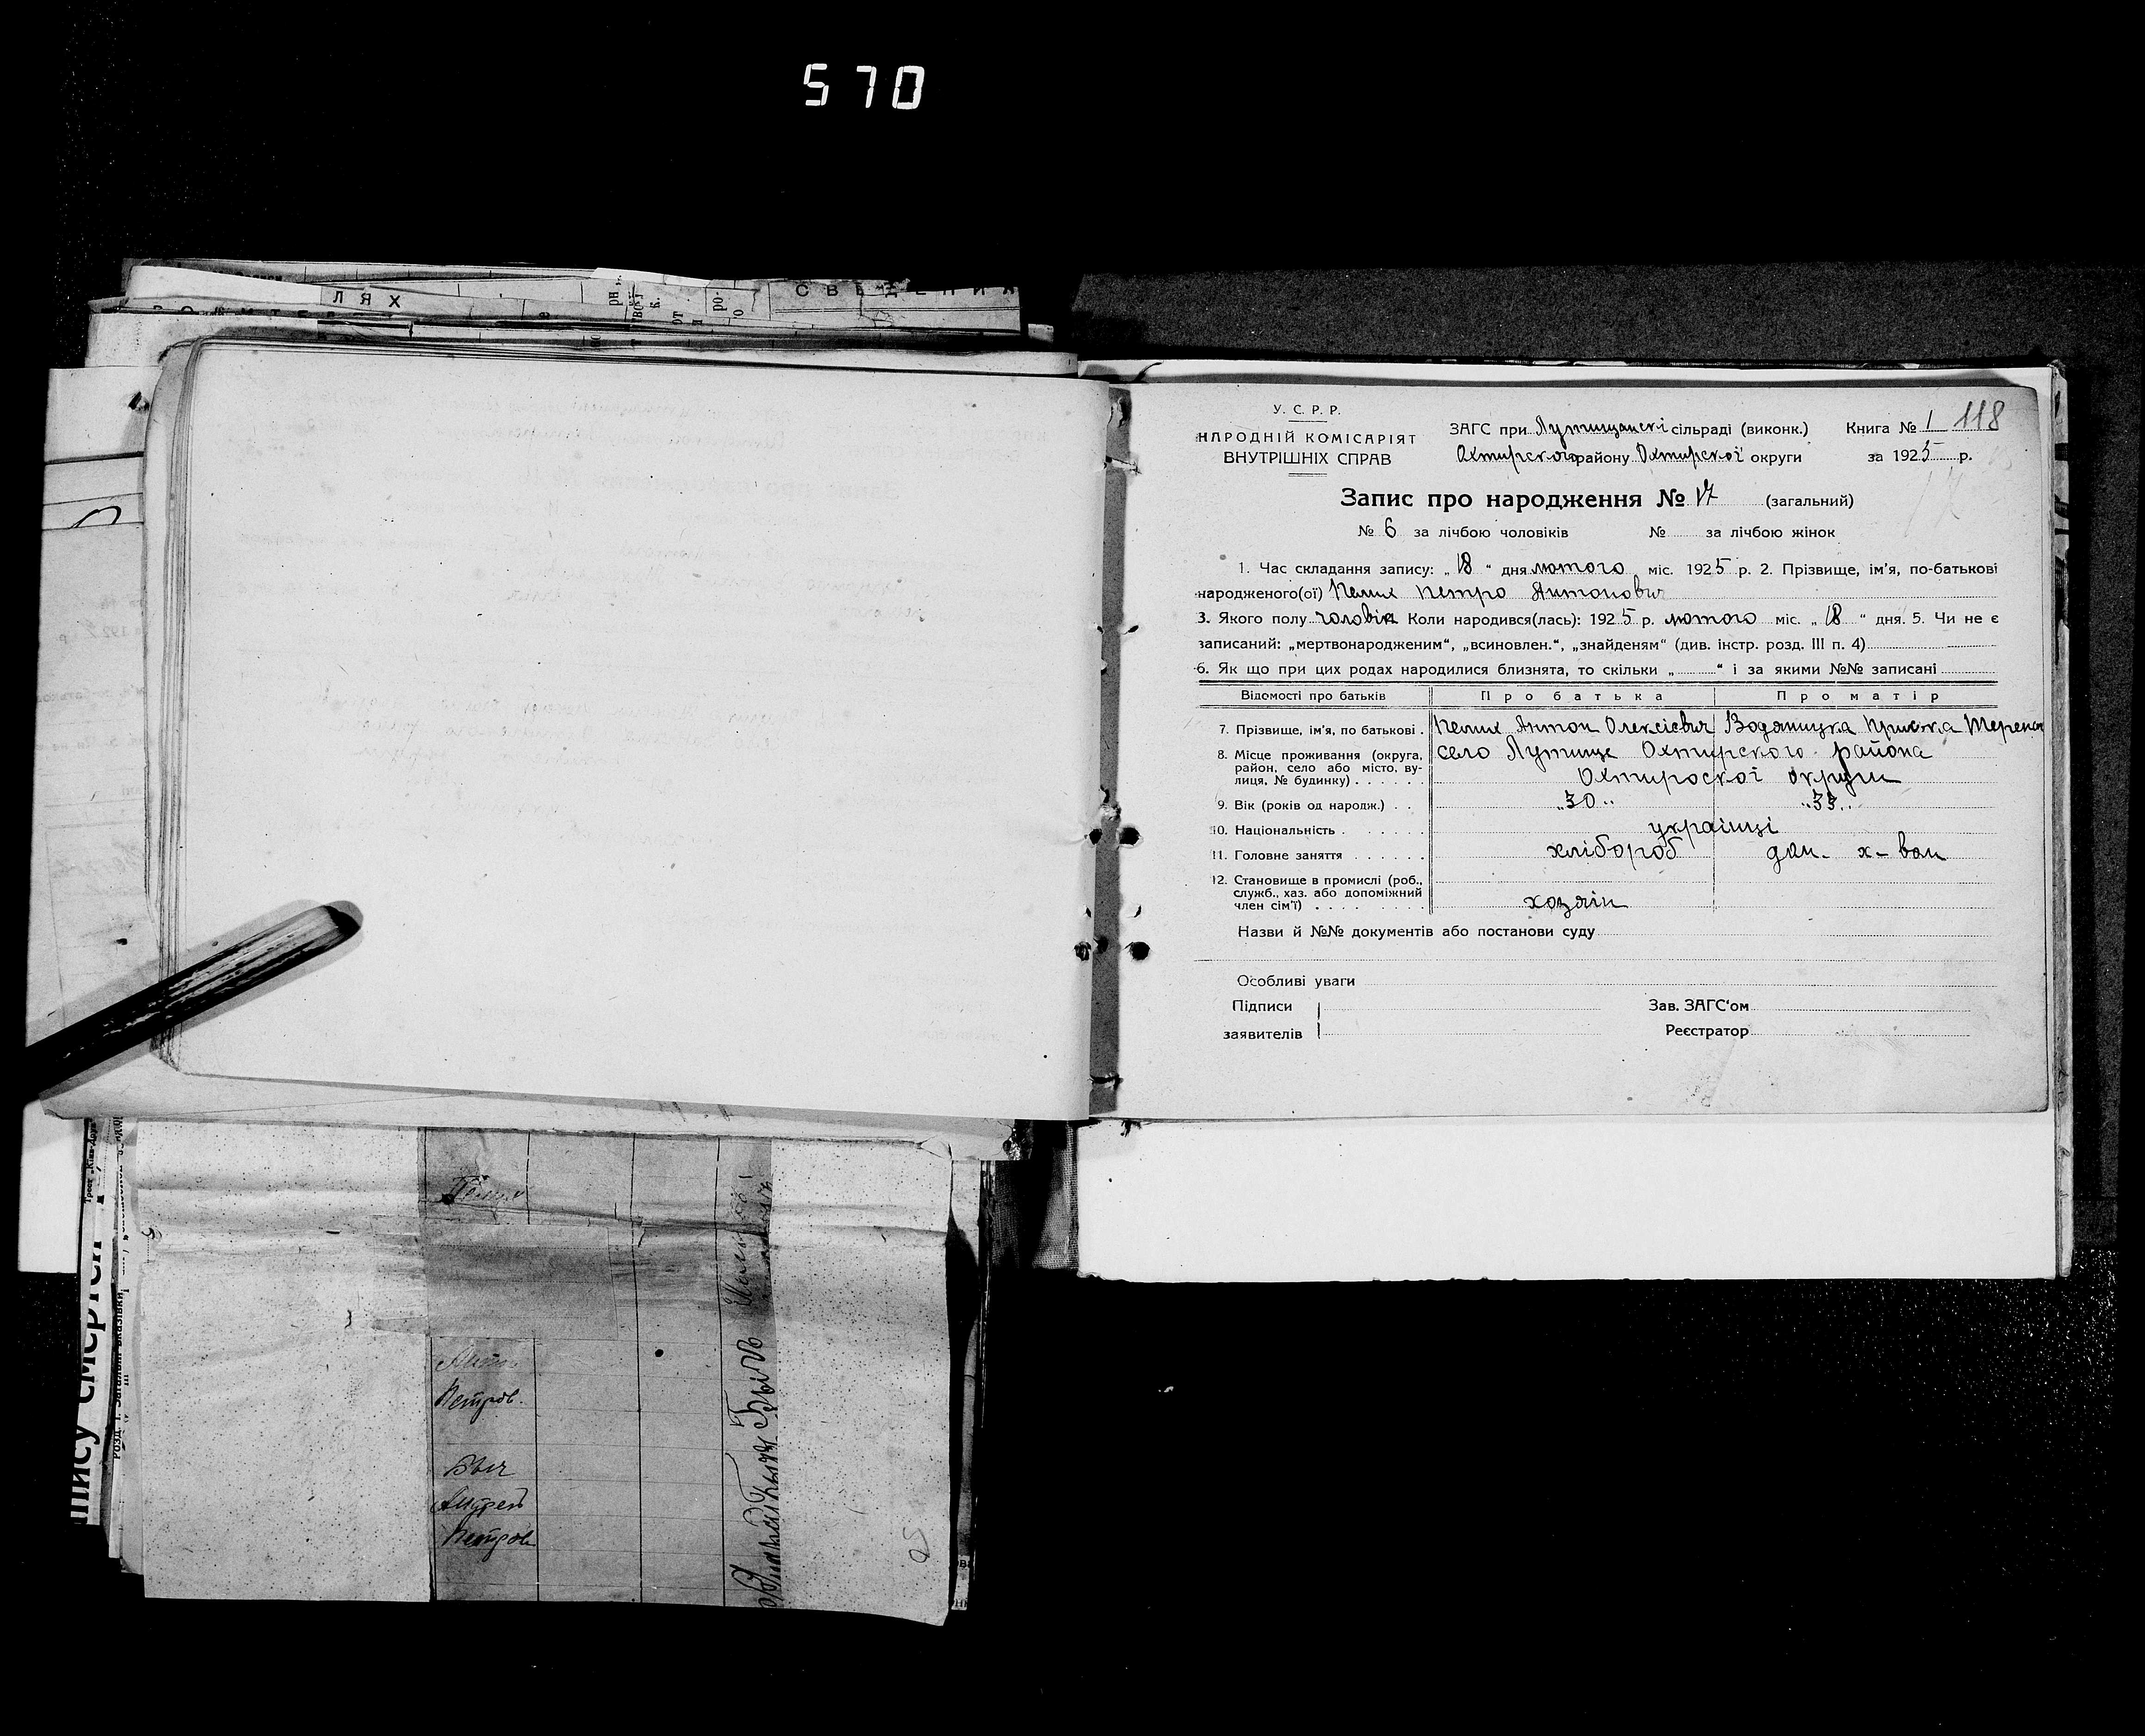 570
ЛЯХ
СВѢДЕНИЯ
У. С. Р. Р.
НАРОДНІЙ КОМІСАРІЯТ
ВНУТРІШНІХ СПРАВ
ЗАГС при Лутищанскі сільраді (виконк.) Книга № 1 118
Охтирскоі району Охтирскоі округи за 1925 р.
Запис про народження № 17 (загальний)
№ 6 за лічбою чоловіків № за лічбою жінок
1. Час складання запису: „ 18 “ дня лютого міс. 1925 р. 2. Прізвище, ім'я, по-батькові
народженого(ої) Пелих Петро Антонович
3. Якого полу чоловік Коли народився(лась): 1925 р. лютого міс. „ 18 “ дня. 5. Чи не є
записаний: „мертвонародженим“, „всиновлен.“, „знайденям“ (див. інстр. розд. III п. 4)
6. Як що при цих родах народилися близнята, то скільки „ “ і за якими №№ записані
Відомості про батьків Про батька Про матір
7. Прізвище, ім'я, по батькові . Пелих Антон Олексієвич Водяницка Приська
8. Місце проживання (округа, район, село або місто, вулиця, № будинку) . . . . . село Лутище Охтирского района
Охтироскоі округи
9. Вік (років од народж.) . . „30„ „33„
10. Національність . . . . . . українці
11. Головне заняття . . . . . . хлібороб дом. х-вом
12. Становище в промислі (роб.,
служб., хаз. або допоміжний
член сім'ї) . . . . . . . . хозяін
Назви й №№ документів або постанови суду
Особливі уваги
Підписи
заявителів
Зав. ЗАГС'ом
Реєстратор
Пелих
Антон
Петров.
Быч
Андрей
Петров